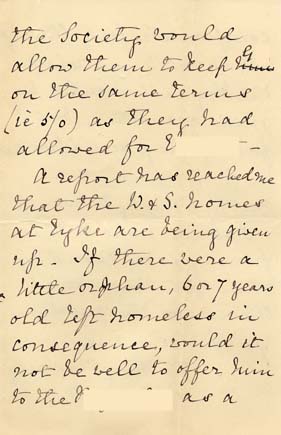 the Society would
allow them to keep G
on the same terms
(ie 5/0) as they had
allowed for E
A report has reached me
that the W. & S. homes
at Eyke are being given
up. If there were a
little orphan, 6 or 7 years
old left homeless in
consequence, would it
not be well to offer him
to the as a